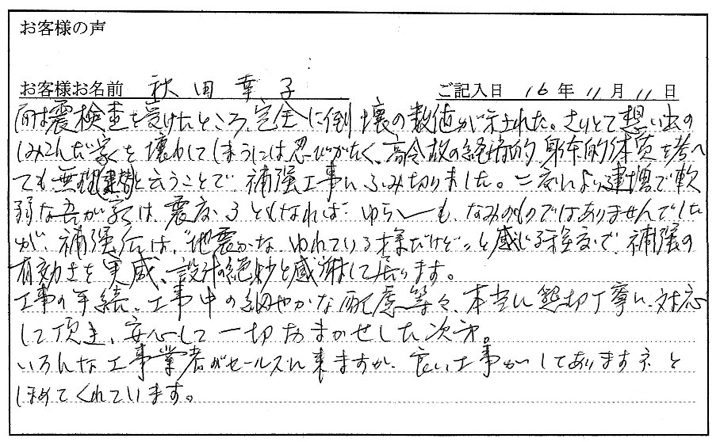 お客様の声
お客様お名前 秋田幸子 ご記入日 16年11月11日
耐震検査を受けたところ、完全に倒壊の数値が示された。さりとて想い出の
しみこんだ家を壊わしてしまうには忍びがたく、高令故の経済的身体的体質を考へ
ても無理と云うことで、補強工事にふみ切りました。二度による建増で軟
弱な吾が家は、震度3ともなれば、ゆらーも、なみのものではありませんでした
が、補強后は、"地震かな、ゆれている様だけど"っと感じる程度で、補強の
有効さを実感、設計の絶妙と感謝して居ります。
工事の手続、工事中の細やかな配慮等々、本当に懇切丁寧に対応
して頂き、安心して一切おまかせした次第。
いろんな工事業者がセールスに来ますが、良い工事がしてありますネと
ほめてくれています。